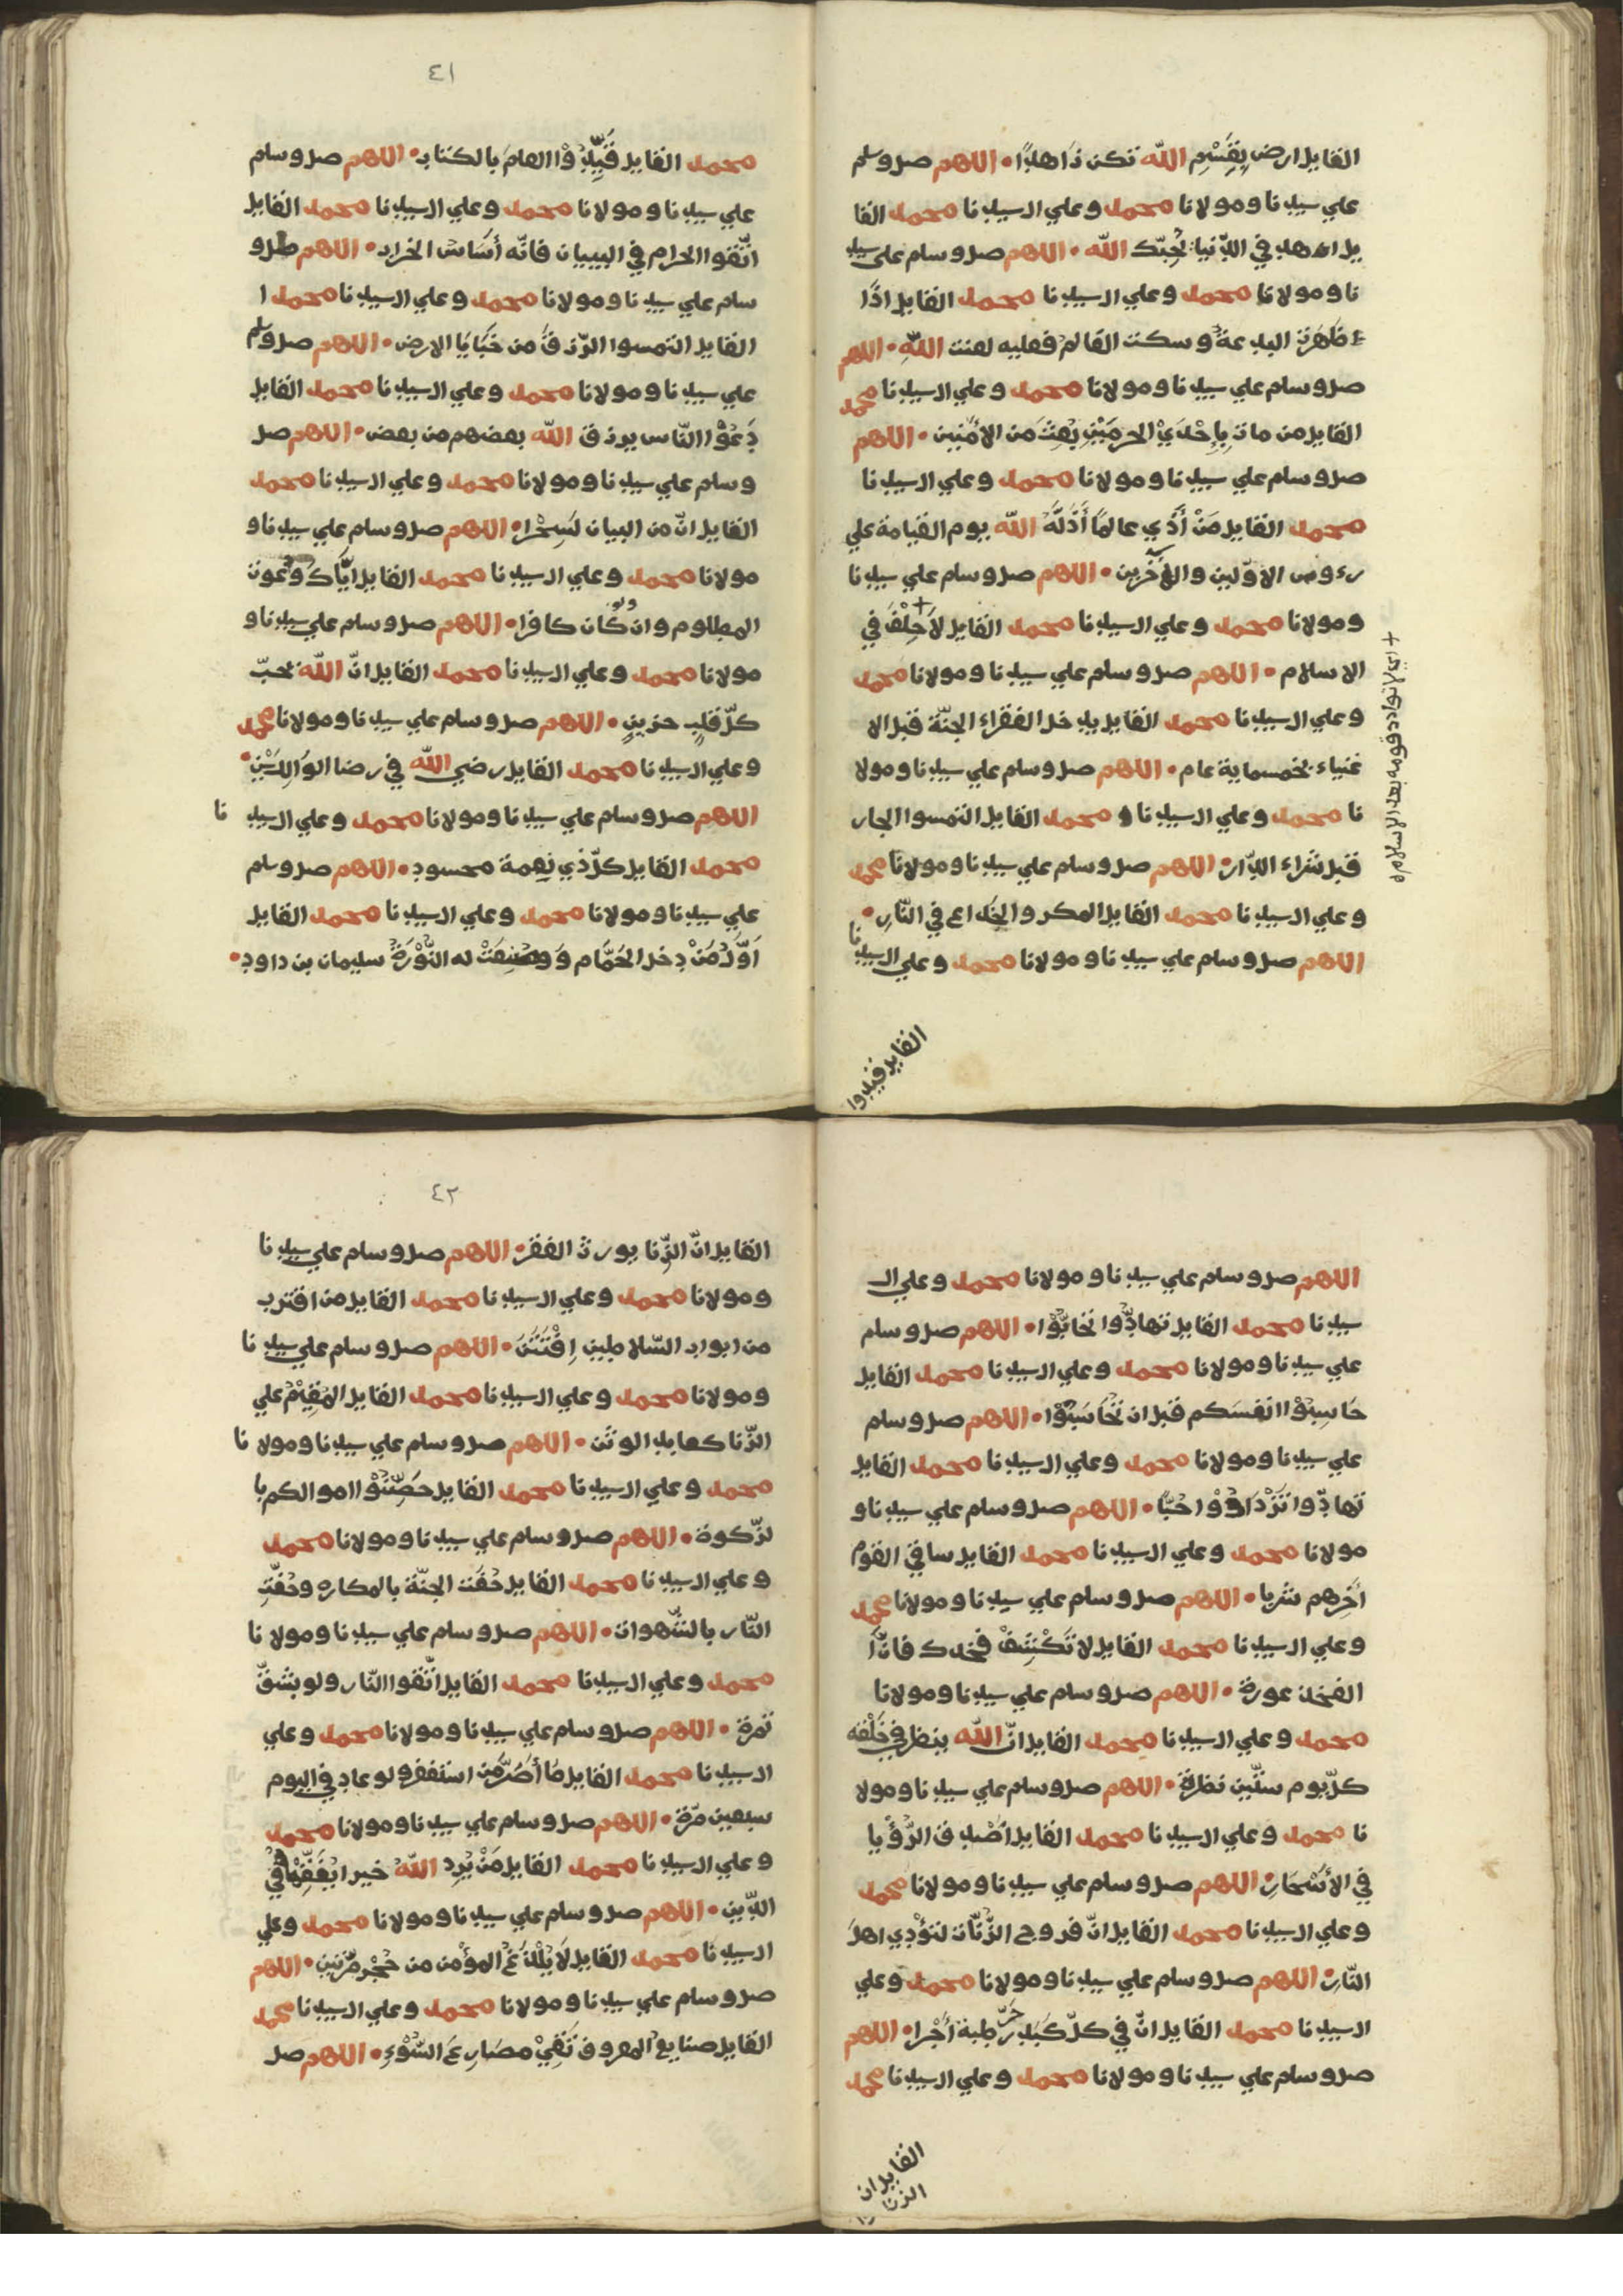 القايل ارض بِقَسْمِ الله تكن زَاهدًا • اللهم صل وسلم
علي سيدنا ومولانا محمد وعلي ال سيدنا محمد القا
يل ازهد في الدّنيا يُحِبّك الله • اللهم صل وسلم علي سيد
نا ومولانا محمد وعلي ال سيدنا محمد القايل اذَا
ظَهَرَت البدعةُ وسكت العَالمُ فعليه لعنت اللهِ • اللهم
صل وسلم علي سيدنا ومولانا محمد وعلي ال سيدنا محمد
القايل من مات بِإِحْدَيْ الحرمَيْنِ بُعِثَ من الأمنين • اللهم
صل وسلم علي سيدنا ومولانا محمد وعلي ال سيدنا
محمد القايل مَنْ أَذَي عالمًا أَذَلَّهُ الله يوم القيامة علي
رءوس الاوّلين والأخَرين • اللهم صل وسلم علي سيدنا
ومولانا محمد وعلي ال سيدنا محمد القايل لَا حِلْفَ في
الاسلام • اللهم صل وسلم علي سيدنا ومولانا محمد
وعلي ال سيدنا محمد القايل يدخل الفقراء الجنّة قبل الا
غنياء بخمسماية عام • اللهم صل وسلم علي سيدنا ومولا
نا محمد وعلي ال سيدنا و محمد القايل التمسوا الجار
قبل شراء الدّار • اللهم صل وسلم علي سيدنا ومولانا محمد
وعلي ال سيدنا محمد القايل المكر والخداع في النّارِ •
اللهم صل وسلم علي سيدنا ومولانا محمد وعلي ال سيدنا
القايل قيدوا
٤١
محمد القايل قَيِّدُوْا العلمَ بالكتاب • اللهم صل وسلم
علي سيدنا ومولانا محمد وعلي ال سيدنا محمد القايل
اتّقوا الحرام في البنيان فانّه أَسَاسُ الخراب • اللهم صل و
سلم علي سيدنا ومولانا محمد وعلي ال سيدنا محمد ا
القايل التمسوا الرّزقَ من خَبَايَا الارض • اللهم صل وسلم
علي سيدنا ومولانا محمد وعلي ال سيدنا محمد القايل
دَعُوْا النّاس يرزق الله بعضهم من بعض • اللهم صل
وسلم علي سيدنا ومولانا محمد وعلي ال سيدنا محمد
القايل انّ من البيان لَسِحْرا • اللهم صل وسلم علي سيدنا و
مولانا محمد وعلي ال سيدنا محمد القايل ايَّاك ودعوت
المظلوم وان كان كافرا • اللهم صل وسلم علي سيدنا و
مولانا محمد وعلي ال سيدنا محمد القايل انّ اللهَ يحبّ
كلّ قلبٍ حزينٍ • اللهم صل وسلم علي سيدنا ومولانا محمد
وعلي ال سيدنا محمد القايل رضي الله في رضا الوَالِدَيْنِ •
اللهم صل وسلم علي سيدنا ومولانا محمد وعلي ال سيدنا
محمد القايل كلّ ذي نِعمة محسود • اللهم صل وسلم
علي سيدنا ومولانا محمد وعلي ال سيدنا محمد القايل
اَوَّلُ مَنْ دخل الحَمَّام وَوضِعَتْ له النُّوْرَةُ سليمان بن داود •
+ اي لا تودد قومه بعد الاسلام
اللهم صل وسلم علي سيدنا ومولانا محمد وعلي ال
سيدنا محمد القايل تهادُّوا تحَابُّوْا • اللهم صل وسلم
علي سيدنا ومولانا محمد وعلي ال سيدنا محمد القايل
حَاسِبُوْا انفسَكم قبل ان تُحَاسَبُوْا • اللهم صل وسلم
علي سيدنا ومولانا محمد وعلي ال سيدنا محمد القايل
تهادّوا تَزْدَادُوْا حُبًّا • اللهم صل وسلم علي سيدنا و
مولانا محمد وعلي ال سيدنا محمد القايل ساقي القوم
أخِرهم شربا • اللهم صل وسلم علي سيدنا ومولانا محمد
وعلي ال سيدنا محمد القايل لا تَكْشِفْ فخدك فانَّ ا
الفخذ عورة • اللهم صل وسلم علي سيدنا ومولانا
محمد وعلي ال سيدنا محمد القايل انّ الله ينظر في خَلْقه
كلّ يوم ستّين نظرة • اللهم صل وسلم علي سيدنا ومولا
نا محمد وعلي ال سيدنا محمد القايل اَصْدق الرُّؤْيا
في الأَسْحَارِ • اللهم صل وسلم علي سيدنا ومولانا محمد
وعلي ال سيدنا محمد القايل انّ فروج الزُّنَات لتؤْذِي اهلَ
النّارِ • اللهم صل وسلم علي سيدنا ومولانا محمد وعلي
ال سيدنا محمد القايل انّ في كلّ كَبَد حَرّ طبة أَجْرا • اللهم
صل وسلم علي سيدنا ومولانا محمد وعلي ال سيدنا محمد
القايل ان
الزنا
٤٢
القايل انّ الزّنا يورث الفقر • اللهم صل وسلم علي سيدنا
ومولانا محمد وعلي ال سيدنا محمد القايل من اقترب
من ابواب السّلاطين اِفْتَتَنَ • اللهم صل وسلم علي سيدنا
ومولانا محمد وعلي ال سيدنا محمد القايل المُقِيْمُ علي
الزّنا كعابد الوثن • اللهم صل وسلم علي سيدنا ومولانا
محمد وعلي ال سيدنا محمد القايل حَصِّنُوْا اموالكم با
لزّكوة • اللهم صل وسلم علي سيدنا ومولانا محمد
وعلي ال سيدنا محمد القايل حُفَّت الجنّة بالمكاره وحُفَّتِ
النّار بالشَّهوات • اللهم صل وسلم علي سيدنا ومولانا
محمد وعلي ال سيدنا محمد القايل اتّقوا النّار ولو بشقّ
تمرة • اللهم صل وسلم علي سيدنا ومولانا محمد وعلي
ال سيدنا محمد القايل مَا أَصَرَّ من استغفر ولو عاد في اليوم
سبعين مرّة • اللهم صل وسلم علي سيدنا ومولانا محمد
وعلي ال سيدنا محمد القايل مَنْ يُرِد اللهُ خيرا يُفَقِّهْهُ في
الدّين • اللهم صل وسلم علي سيدنا ومولانا محمد وعلي
ال سيدنا محمد القايل لَا يُلْدَغُ المؤمن من حُجْر مرّتين • اللهم
صل وسلم علي سيدنا ومولانا محمد وعلي ال سيدنا محمد
القايل صنايع المعروف تَقِيْ مصَارِعَ السُّوْءِ • اللهم صل